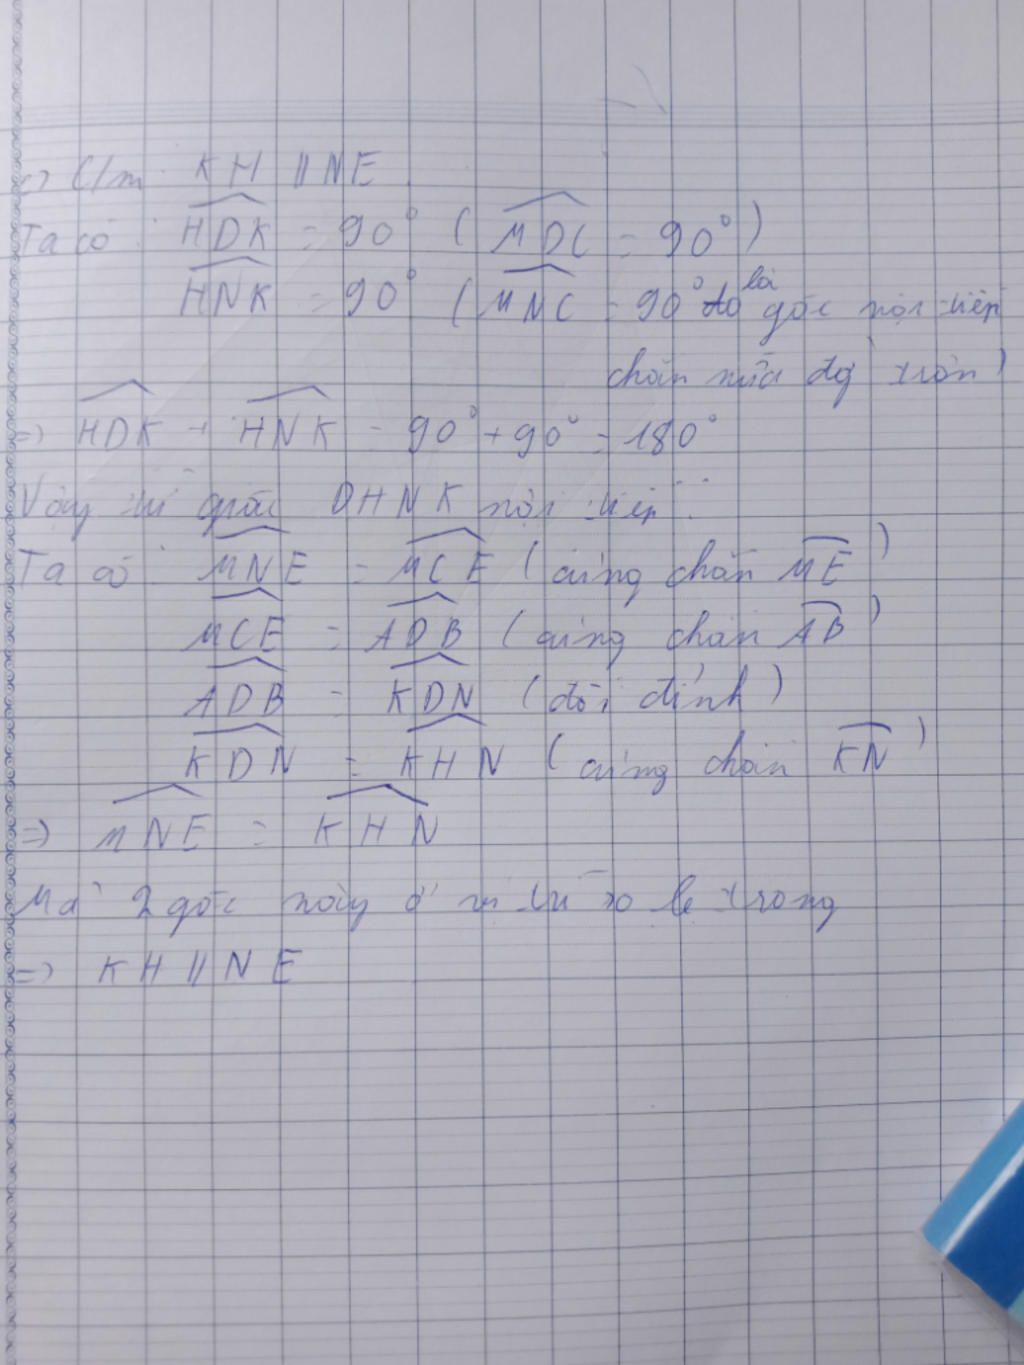 c) C/m: KH // NE
Ta có: HDK = 90° ( MDC = 90° )
HNK = 90° ( MNC = 90° là góc nội tiếp
chắn nửa đg tròn )
=> HDK + HNK = 90° + 90° = 180°
Vậy tứ giác DHNK nội tiếp
Ta có: MNE = MCE ( cùng chắn ME )
MCE = ADB ( cùng chắn AB )
ADB = KDN ( đối đỉnh )
KDN = KHN ( cùng chắn KN )
=> MNE = KHN
Mà 2 góc này ở vị trí so le trong
=> KH // NE